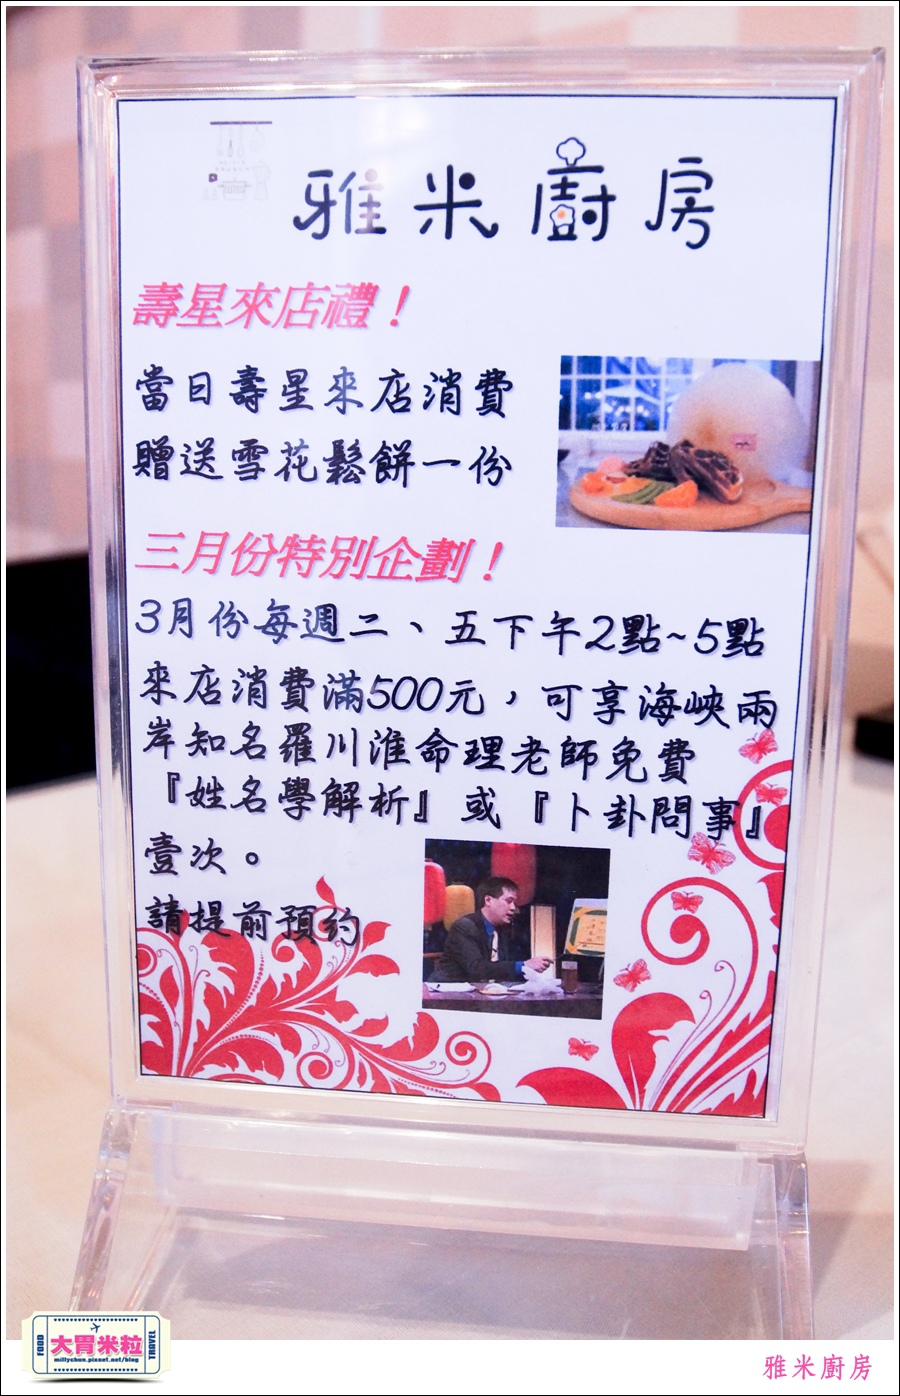 雅米廚房
壽星來店禮！
當日壽星來店消費
贈送雪花鬆餅一份
三月份特別企劃！
3月份每週二、五下午2點~5點
來店消費滿500元，可享海峽兩
岸知名羅川淮命理老師免費
『姓名學解析』或『卜卦問事』
壹次。
請提前預約
FOOD
大胃米粒
millychun.pixnet.net/blog
TRAVEL
雅米廚房